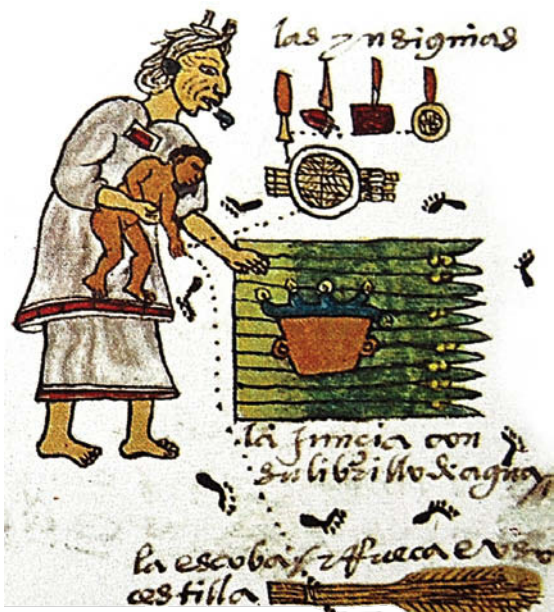 las ynsignias
la juncia con
su librillo de agua
la escoba y Rueca e uso
cestilla